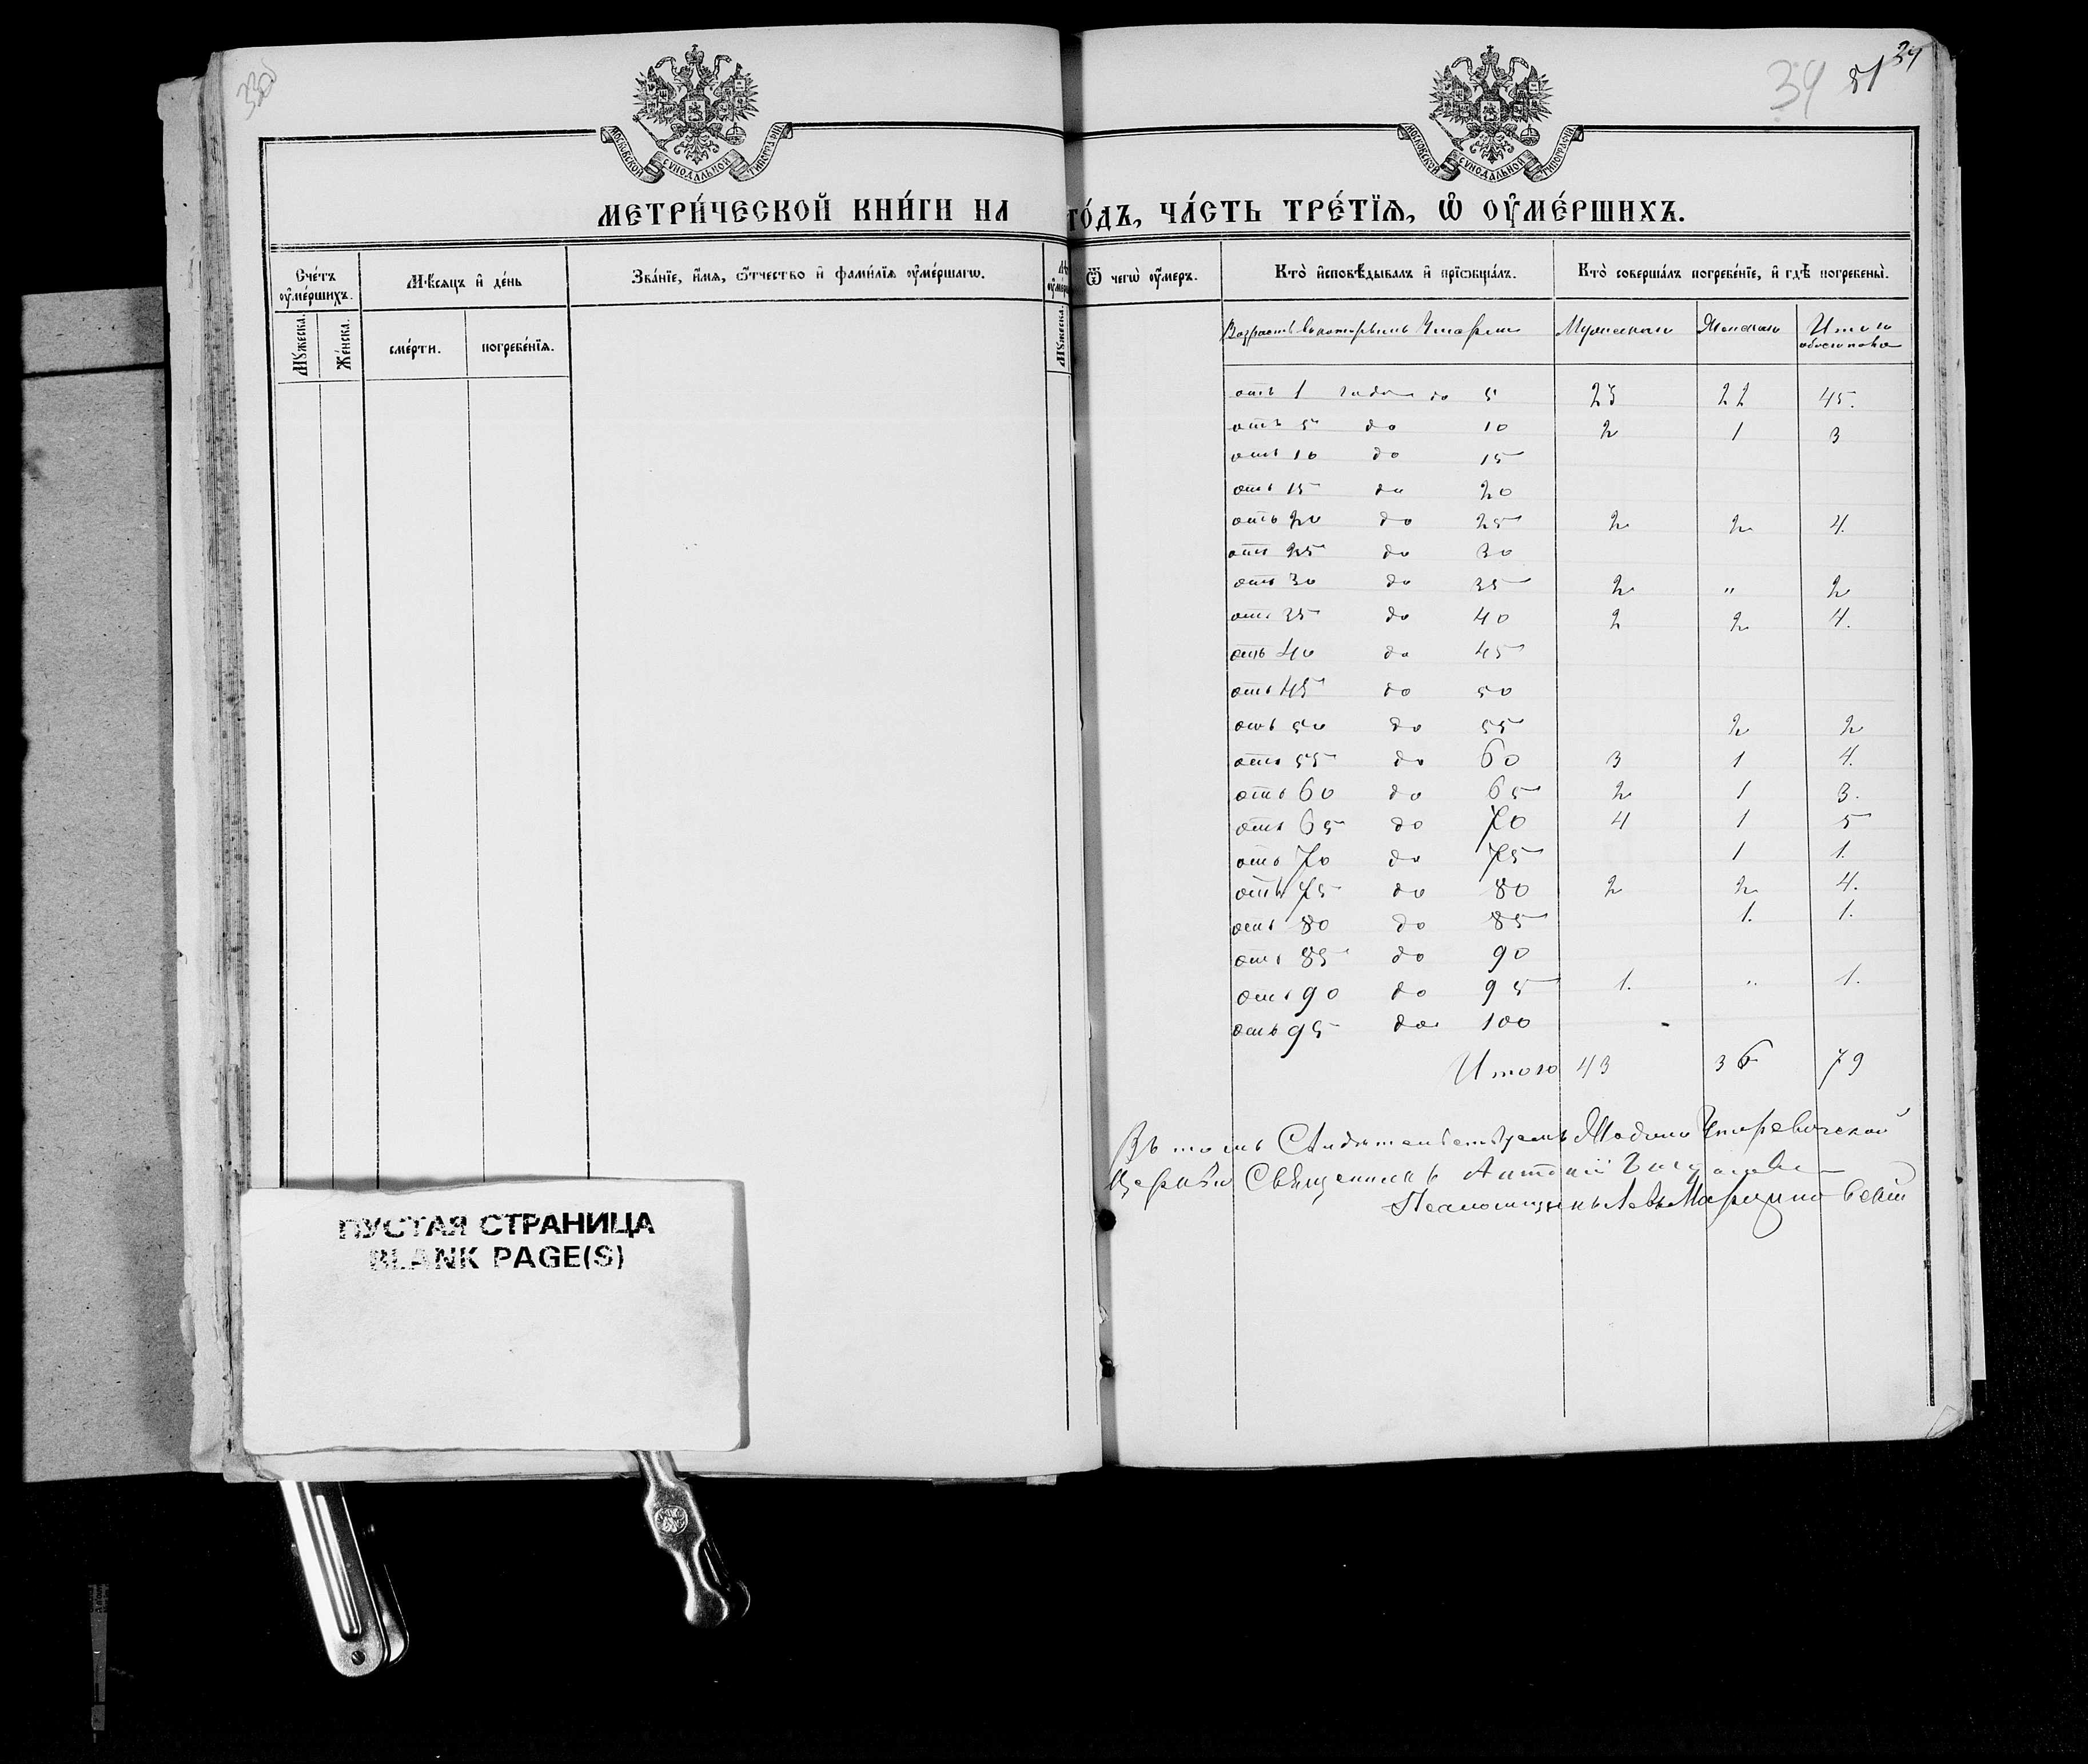 33об
34 51 34
МОСКОВСКОЙ СѴНОДАЛЬНОЙ ТИПОГРАФІИ
МОСКОВСКОЙ СѴНОДАЛЬНОЙ ТИПОГРАФІИ
МЕТРИ́ЧЕСКОЙ КНИ́ГИ НА ГО́ДЪ, ЧА́СТЬ ТРЕ́ТЇѦ, Ѡ҆ ОУ҆МЕ́РШИХЪ.
Сче́тъ оу҆ме́ршихъ.
Мѣ́сѧцъ и҆ де́нь
Зва́нїе, и҆́мѧ, ѻ҆́тчество и҆ фами́лїѧ оу҆ме́ршагѡ.
Ѿ чегѡ̀ оу҆́меръ.
Кто̀ и҆сповѣ́дывалъ и҆ прїѡбща́лъ.
Кто̀ соверша́лъ погребе́нїе, и҆ гдѣ̀ погребены̀.
Мꙋ́жеска.
Же́нска.
сме́рти.
погребе́нїѧ.
Мꙋ́жеска.
Возрастъ въ которымъ Умерли Мужескаго Женскаго Итого обоего пола
отъ 1 года до 5 23 22 45.
отъ 5 до 10 2 1 3
отъ 10 до 15
отъ 15 до 20
отъ 20 до 25 2 2 4.
отъ 25 до 30
отъ 30 до 35 2 " 2
отъ 35 до 40 2 2 4.
отъ 40 до 45
отъ 45 до 50
отъ 50 до 55 2 2
отъ 55 до 60 3 1 4.
отъ 60 до 65 2 1 3.
отъ 65 до 70 4 1 5
отъ 70 до 75 1 1.
отъ 75 до 80 2 2 4.
отъ 80 до 85 1. 1.
отъ 85 до 90
отъ 90 до 95 1. " 1.
отъ 95 до 100
Итого 43 36 79
Въ томъ Свидѣтельствуемъ
Церкви Священникъ Антоній
Псаломщикъ Левъ Марциновскій
ПУСТАЯ СТРАНИЦА
BLANK PAGE(S)